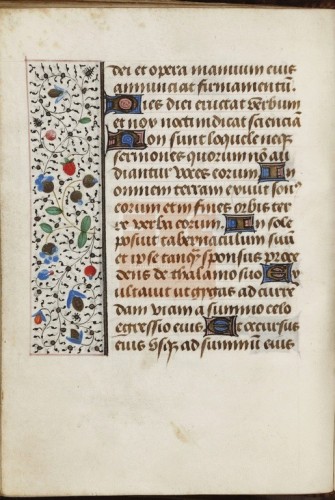 dei et opera manuum eius
annunciat firmamentū.
Dies diei eructat verbum
et nox nocti indicat scienciā
Non sunt loquele neq̄
sermones quorum nō au
diantur voces eorum In
omnem terram exivit son⁹
eorum et in fines orbis ter
re verba eorum. In sole
posuit tabernaculum suū
et ip̄e tanq̄ sponsus proce
dens de thalamo suo Ex
ultauit ut gygas ad curre
dam viam a summo celo
egressio eius Et occursus
eius vsq̄ ad summū eius